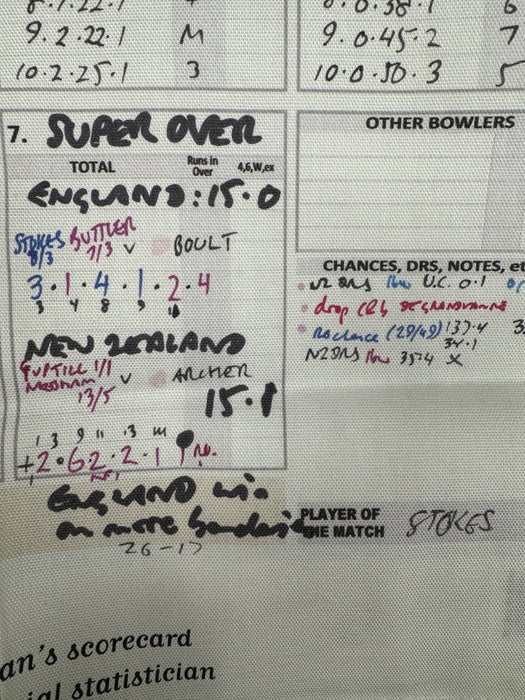 8.1.22.1
9.2.22.1 M
10.2.25.1 3
8.0.38.1 6
9.0.45.2 7
10.0.50.3 5
7. SUPER OVER
TOTAL Runs in Over 4,6,W,ex
ENGLAND: 15.0
STOKES 8/3 BUTTLER 7/3 v BOULT
3.1.4.1.2.4
3 4 8 9
NEW ZEALAND
GUPTILL 1/1
NEESHAM 13/5 v ARCHER
15.1
1 3 9 11 13 14
+2.6.2.2.1
ENGLAND win
on more boundaries
26-17
OTHER BOWLERS
CHANCES, DRS, NOTES, et
NZ DRS U.C. 0.1
drop DE GRANDHOMME
no chance (29/49) 137.4
34.1
NZ DRS 357.4 X
PLAYER OF THE MATCH STOKES
an's scorecard
ial statistician